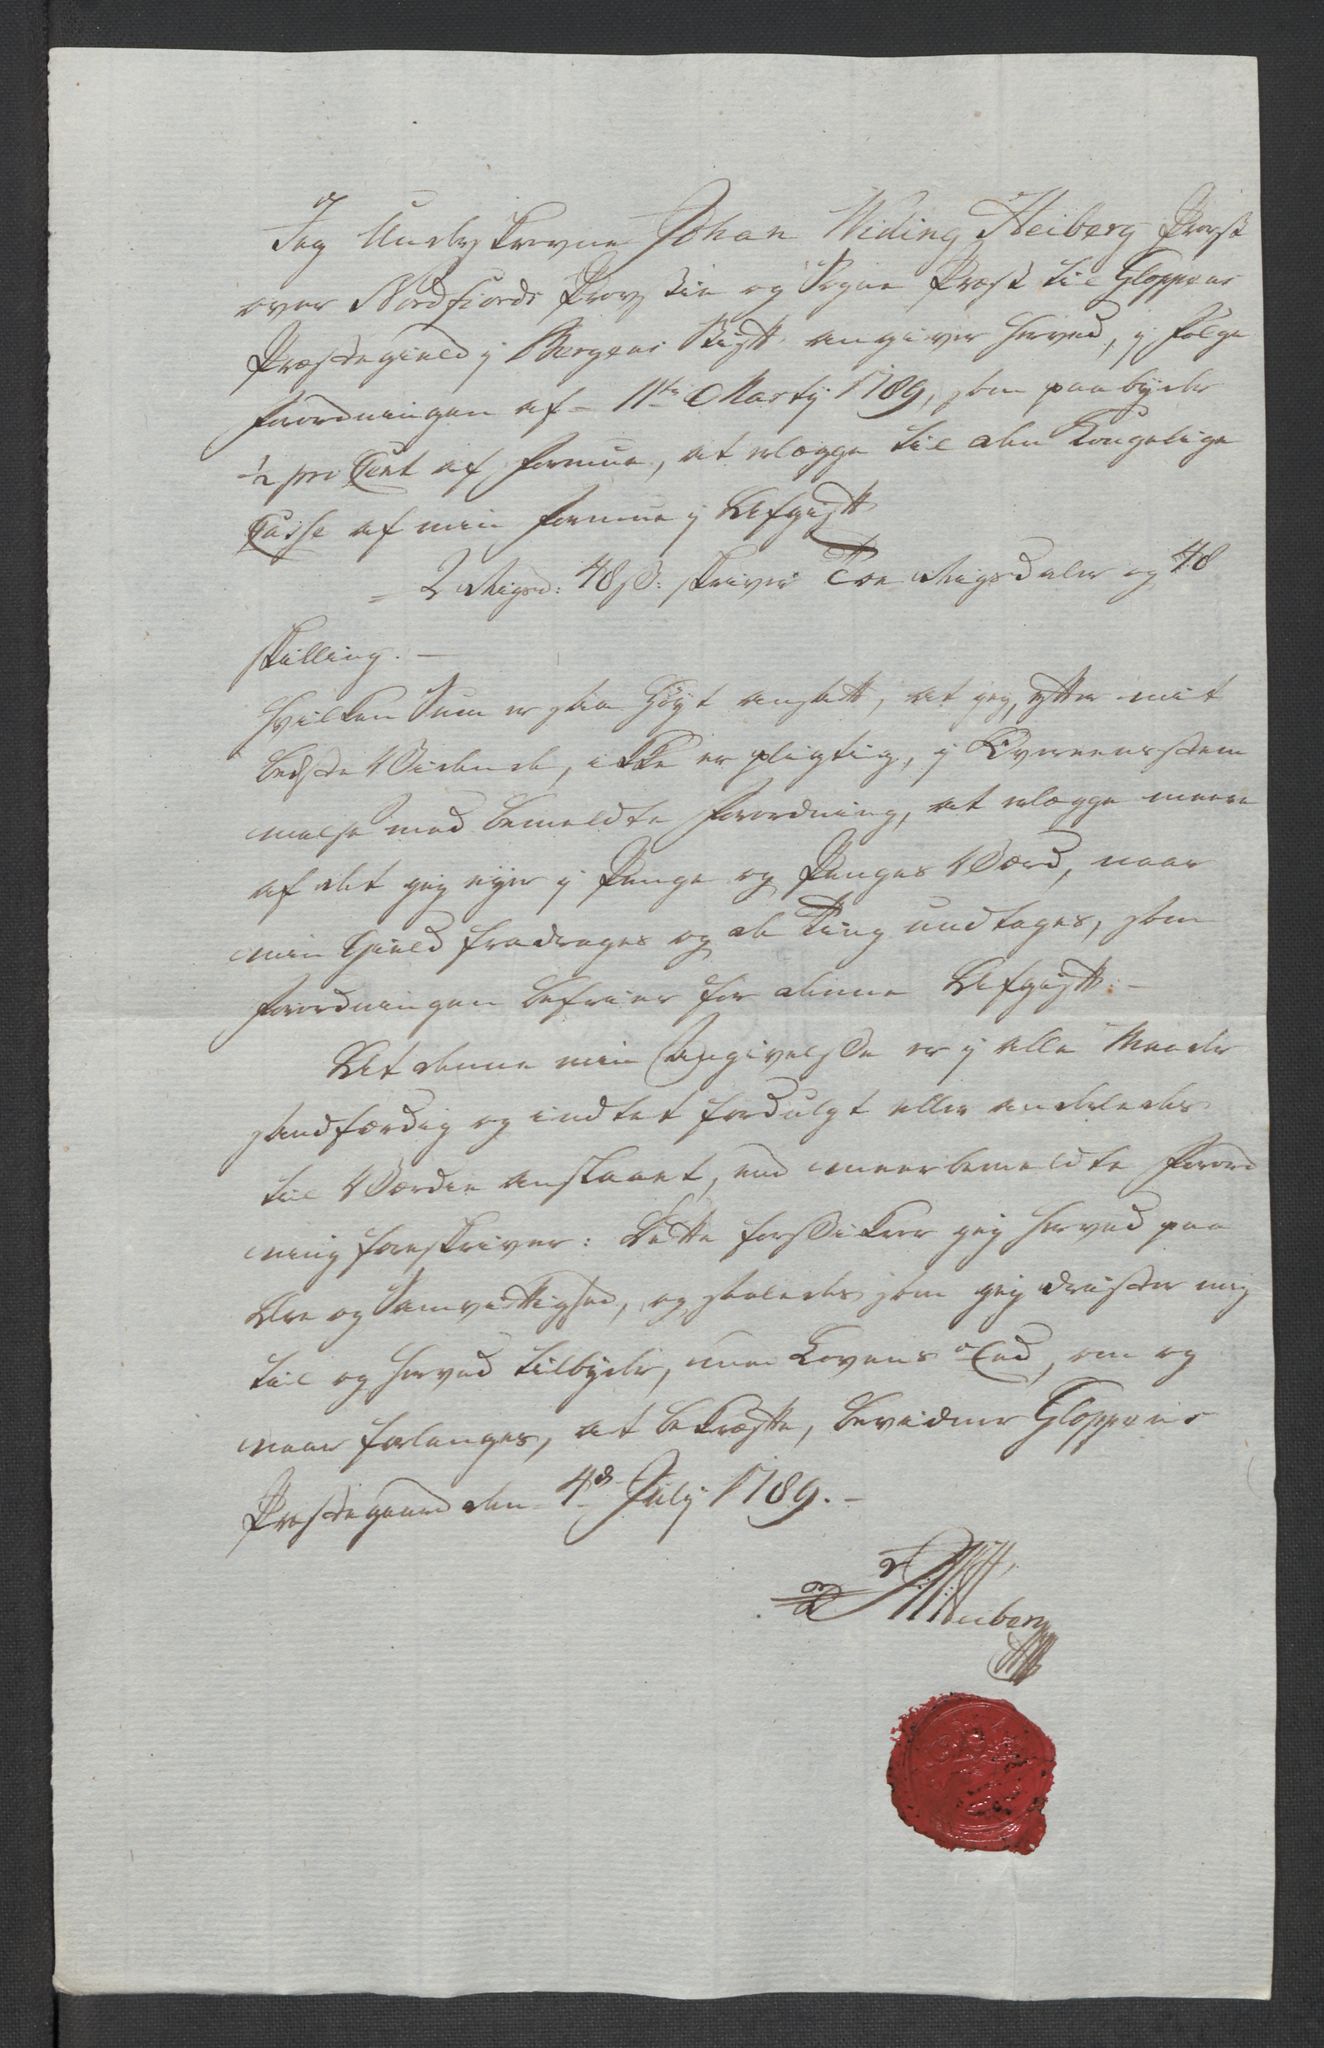 Jeg Underskrevne Johan Widing Heiberg Provst
over Nordfiords Provstie og Sogne Præst til Gloppens
Præstegield j Bergens Stigtt angiver herved, j følge
Forordningen af 11te Martij 1789, som paabyder
1/2 pro Cent af Formue, at erlægge til den Kongelige
Casse af min Formue j Afgigtt
= 2 Rigsd: 48 s: skriver Toe Rigsdaler og 48
skilling. —
Hvilken Sum er saa høyt ansatt, at jeg, efter mit
bedste Vidende, ikke er pligtig, j Overeensstem
melse med bemeldte Forordning, at erlægge meere
af det jeg ejer j Penge og Penges Værd, naar
min Gield fradrages og de Ting undtages, som
Forordningen befrier for denne Afgigtt. —
At denne min Angivelse er j alle Maader
sandfærdig og indtet fordulgt eller anderledes
til Værdie anslaaet, end meerbemeldte Forord
ning foreskriver: Dette forsikrer jeg herved paa
Ære og Samvittighed, og saaledes som jeg drister mig
til og herved tilbyder, med Lovens Eed, om og
naar forlanges, at bekræfte, bevidner Gloppens
Præstegaard den 4de Julij 1789. —
JWHeiberg